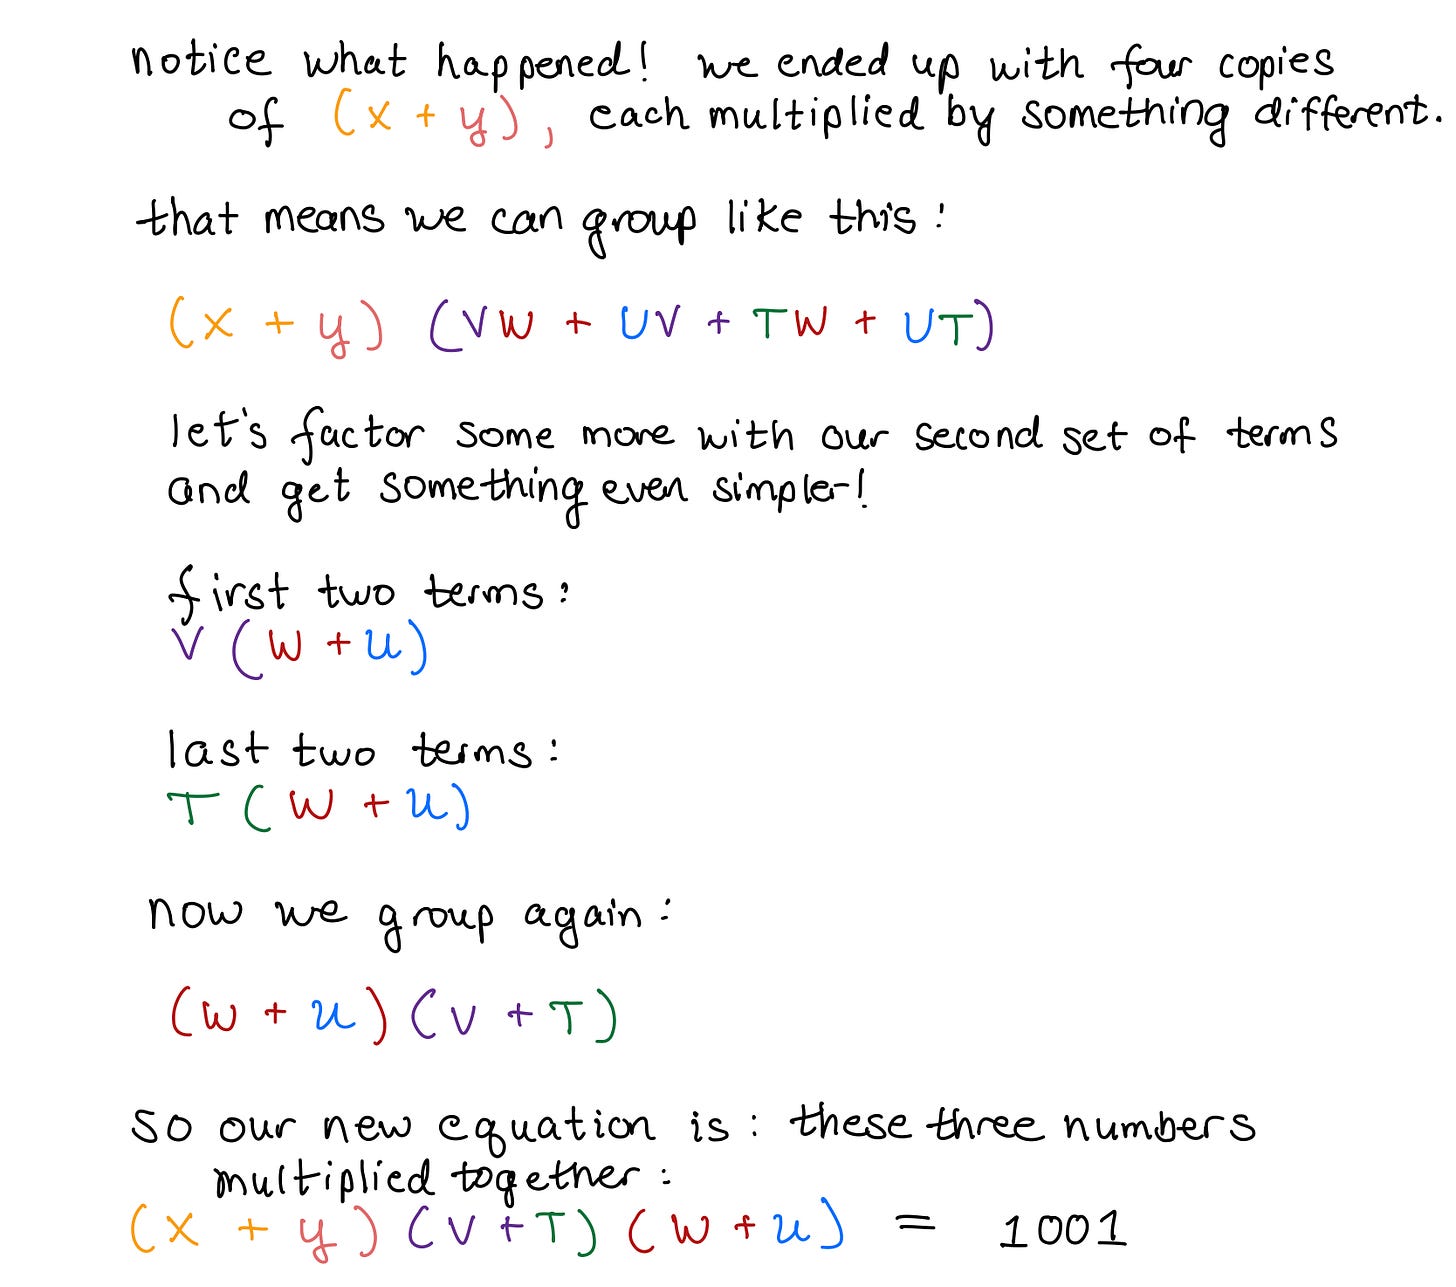 notice what happened! we ended up with four copies
of (x + y), each multiplied by something different.
that means we can group like this:
(x + y) (VW + UV + TW + UT)
let's factor some more with our second set of terms
and get something even simpler!
first two terms:
V (W + U)
last two terms:
T (W + U)
now we group again:
(W + U) (V + T)
so our new equation is: these three numbers
multiplied together:
(x + y) (V + T) (W + U) = 1001